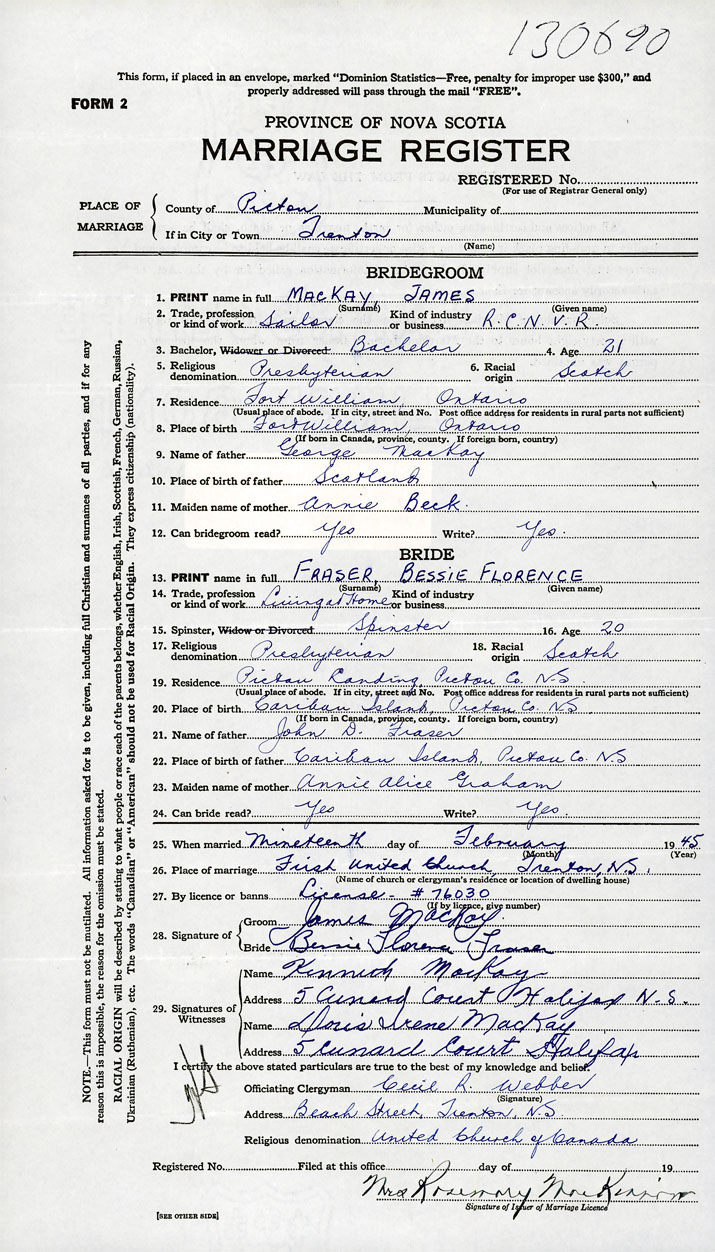 130690
This form, if placed in an envelope, marked “Dominion Statistics—Free, penalty for improper use $300,” and
properly addressed will pass through the mail “FREE”.
FORM 2
PROVINCE OF NOVA SCOTIA
MARRIAGE REGISTER
REGISTERED No.
(For use of Registrar General only)
PLACE OF MARRIAGE
County of Pictou Municipality of
If in City or Town Trenton
(Name)
BRIDEGROOM
1. PRINT name in full MACKAY, JAMES
(Surname) (Given name)
2. Trade, profession or kind of work Sailor Kind of industry or business R.C.N.V.R.
3. Bachelor, Widower or Divorced Bachelor 4. Age 21
5. Religious denomination Presbyterian 6. Racial origin Scotch
7. Residence Fort William, Ontario
(Usual place of abode. If in city, street and No. Post office address for residents in rural parts not sufficient)
8. Place of birth Fort William, Ontario
(If born in Canada, province, county. If foreign born, country)
9. Name of father George MacKay
10. Place of birth of father Scotland
11. Maiden name of mother Annie Beck.
12. Can bridegroom read? Yes Write? Yes.
BRIDE
13. PRINT name in full FRASER, BESSIE FLORENCE
(Surname) (Given name)
14. Trade, profession or kind of work Living at Home Kind of industry or business
15. Spinster, Widow or Divorced Spinster 16. Age 20
17. Religious denomination Presbyterian 18. Racial origin Scotch
19. Residence Pictou Landing, Pictou Co. N.S
(Usual place of abode. If in city, street and No. Post office address for residents in rural parts not sufficient)
20. Place of birth Caribou Island, Pictou Co. N.S.
(If born in Canada, province, county. If foreign born, country)
21. Name of father John D. Fraser
22. Place of birth of father Caribou Island, Pictou Co. N.S
23. Maiden name of mother Annie Alice Graham
24. Can bride read? Yes Write? Yes.
25. When married Nineteenth day of February 1945
(Month) (Year)
26. Place of marriage First United Church, Trenton, N.S.
(Name of church or clergyman's residence or location of dwelling house)
27. By licence or banns License - # 76030
(If by licence, give number)
28. Signature of
Groom James MacKay
Bride Bessie Florence Fraser
29. Signatures of Witnesses
Name Kenneth MacKay
Address 5 Cunard Court Halifax N.S.
Name Doris Irene MacKay
Address 5 Cunard Court Halifax
I certify the above stated particulars are true to the best of my knowledge and belief.
Officiating Clergyman Cecil R. Webber
(Signature)
Address Beach Street, Trenton, N.S.
Religious denomination United Church of Canada
Registered No. Filed at this office day of 19
Mrs Rosemary MacKinnon
Signature of Issuer of Marriage Licence
[SEE OTHER SIDE]
NOTE.—This form must not be mutilated. All information asked for is to be given, including full Christian and surnames of all parties, and if for any
reason this is impossible, the reason for the omission must be stated.
RACIAL ORIGIN will be described by stating to what people or race each of the parents belongs, whether English, Irish, Scottish, French, German, Russian,
Ukrainian (Ruthenian), etc. The words “Canadian” or “American” should not be used for Racial Origin. They express citizenship (nationality).